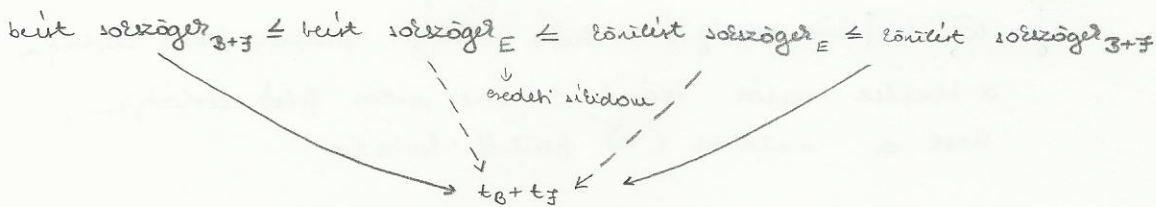 beírt sokszögek B+J ≤ beírt sokszögek E ≤ körülírt sokszögek E ≤ körülírt sokszögek B+J
eredeti síkidom
t_B + t_J